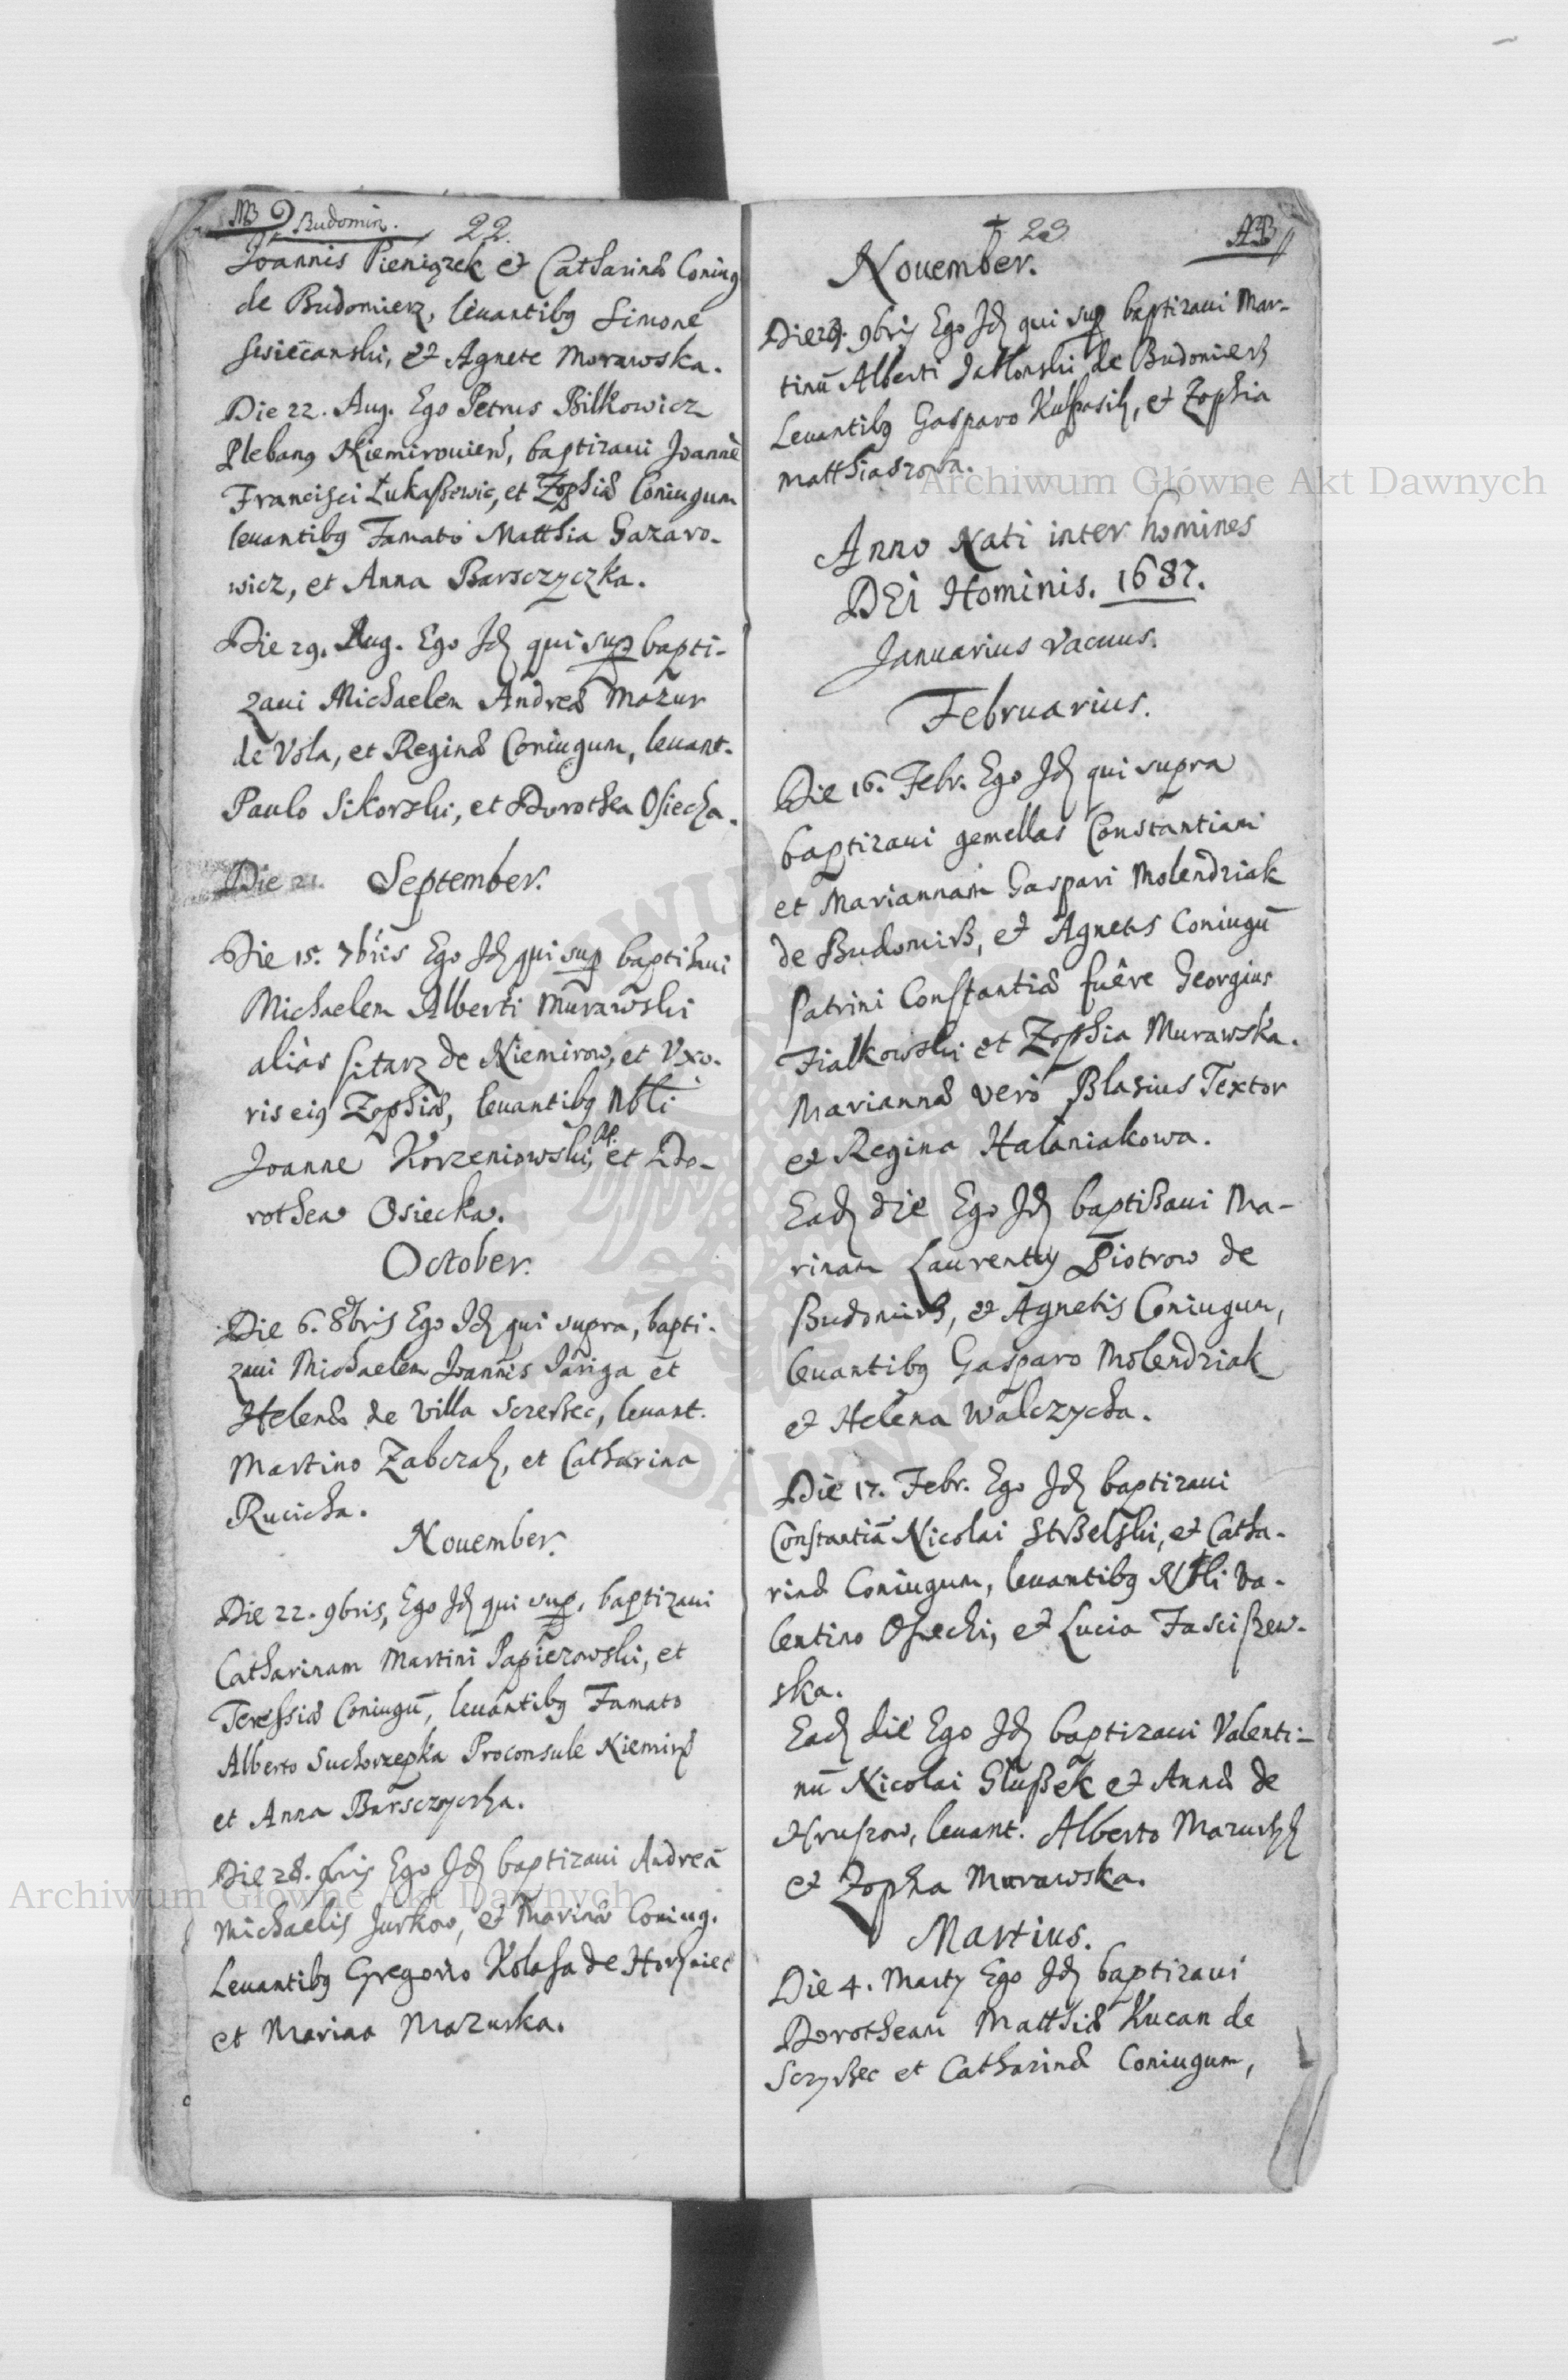 MB Budomir. 22.
Joannis Pieniązek et Catharinæ Coniug
de Budomierz, leuantibq Simone
et Agnete Morawska.
Die 22. Aug. Ego Petrus Bilkowicz
Plebanq Niemirouien, baptizaui Joannē
Francisci Łukaßewic, et Zophiæ Coniugum
leuantibq Famato Matthia Gazaro-
wicz, et Anna Barsczyczka.
Die 29. Aug. Ego Jd qui sup bapti-
zaui Michaelem Andreæ Mazur
de Vola, et Reginæ Coniugum, leuant.
Paulo Sikorski, et Dorothea Osiecka.
Die 21. September.
Die 15. 7bris Ego Jd qui sup baptißaui
Michaelem Alberti Murawski
aliàs sitarz de Niemirow, et Vxo-
ris eiq Zophiæ, leuantibq Nbli
Joanne Korzeniowski, et Do-
rothea Osiecka.
October.
Die 6. 8bris Ego Jd qui supra, bapti-
zaui Michaelem Joannis Jariga et
Helenæ de villa Screßec, leuant.
Martino Zabczak, et Catharina
Rucicha.
Nouember.
Die 22. 9bris, Ego Jd qui sup. baptizaui
Catharinam Martini Papierowski, et
Teressiæ Coniugū, leuantibq Famato
Alberto Suchorzepka Proconsule Niemir
et Anna Barsczyczka.
Die 28. bris Ego Jd baptizaui Andreā
Michaelis Jurkow, et Marinæ Coniug.
Leuantibq Gregorio Kolasa de Horyniec
et Marina Mazurka.
23 AB
Nouember.
Die 29. 9bris Ego Jd qui sup baptizaui Mar-
tinū Alberti Jabłonski de Budomierß
Leuantibq Gasparo et Zophia
Matthiaszowa.
Anno Nati inter homines
DEI Hominis. 1687.
Januarius vacuus.
Februarius.
Die 16. Febr. Ego Jd qui supra
baptizaui gemellas Constantiam
et Mariannam Gaspari Molendziak
de Budomirß, et Agnetis Coniugū
Patrini Constantiæ fuêre Georgius
Fialkowski et Zophia Murawska.
Mariannæ verò Blasius Textor
et Regina Halaniakowa.
Ead die Ego Jd baptißaui Ma-
rinam Laurentij Piotrow de
Budomirß, et Agnetis Coniugum,
leuantibq Gasparo Molendziak
et Helena Walczycha.
Die 17. Febr. Ego Jd baptizaui
Constantiā Nicolai Stßelski, et Catha-
rinæ Coniugum, leuantibq Nbli Va-
lentino Osiecki, et Lucia Fascißew-
ska.
Ead die Ego Jd baptizaui Valenti-
nū Nicolai Glußek et Annæ de
Hruszow, leuant. Alberto
et Zophia Murawska.
Martius.
Die 4. Martij Ego Jd baptizaui
Dorotheam Matthiæ Kucan de
Scryßec et Catharinæ Coniugum,
Archiwum Główne Akt Dawnych
Archiwum Główne Akt Dawnych